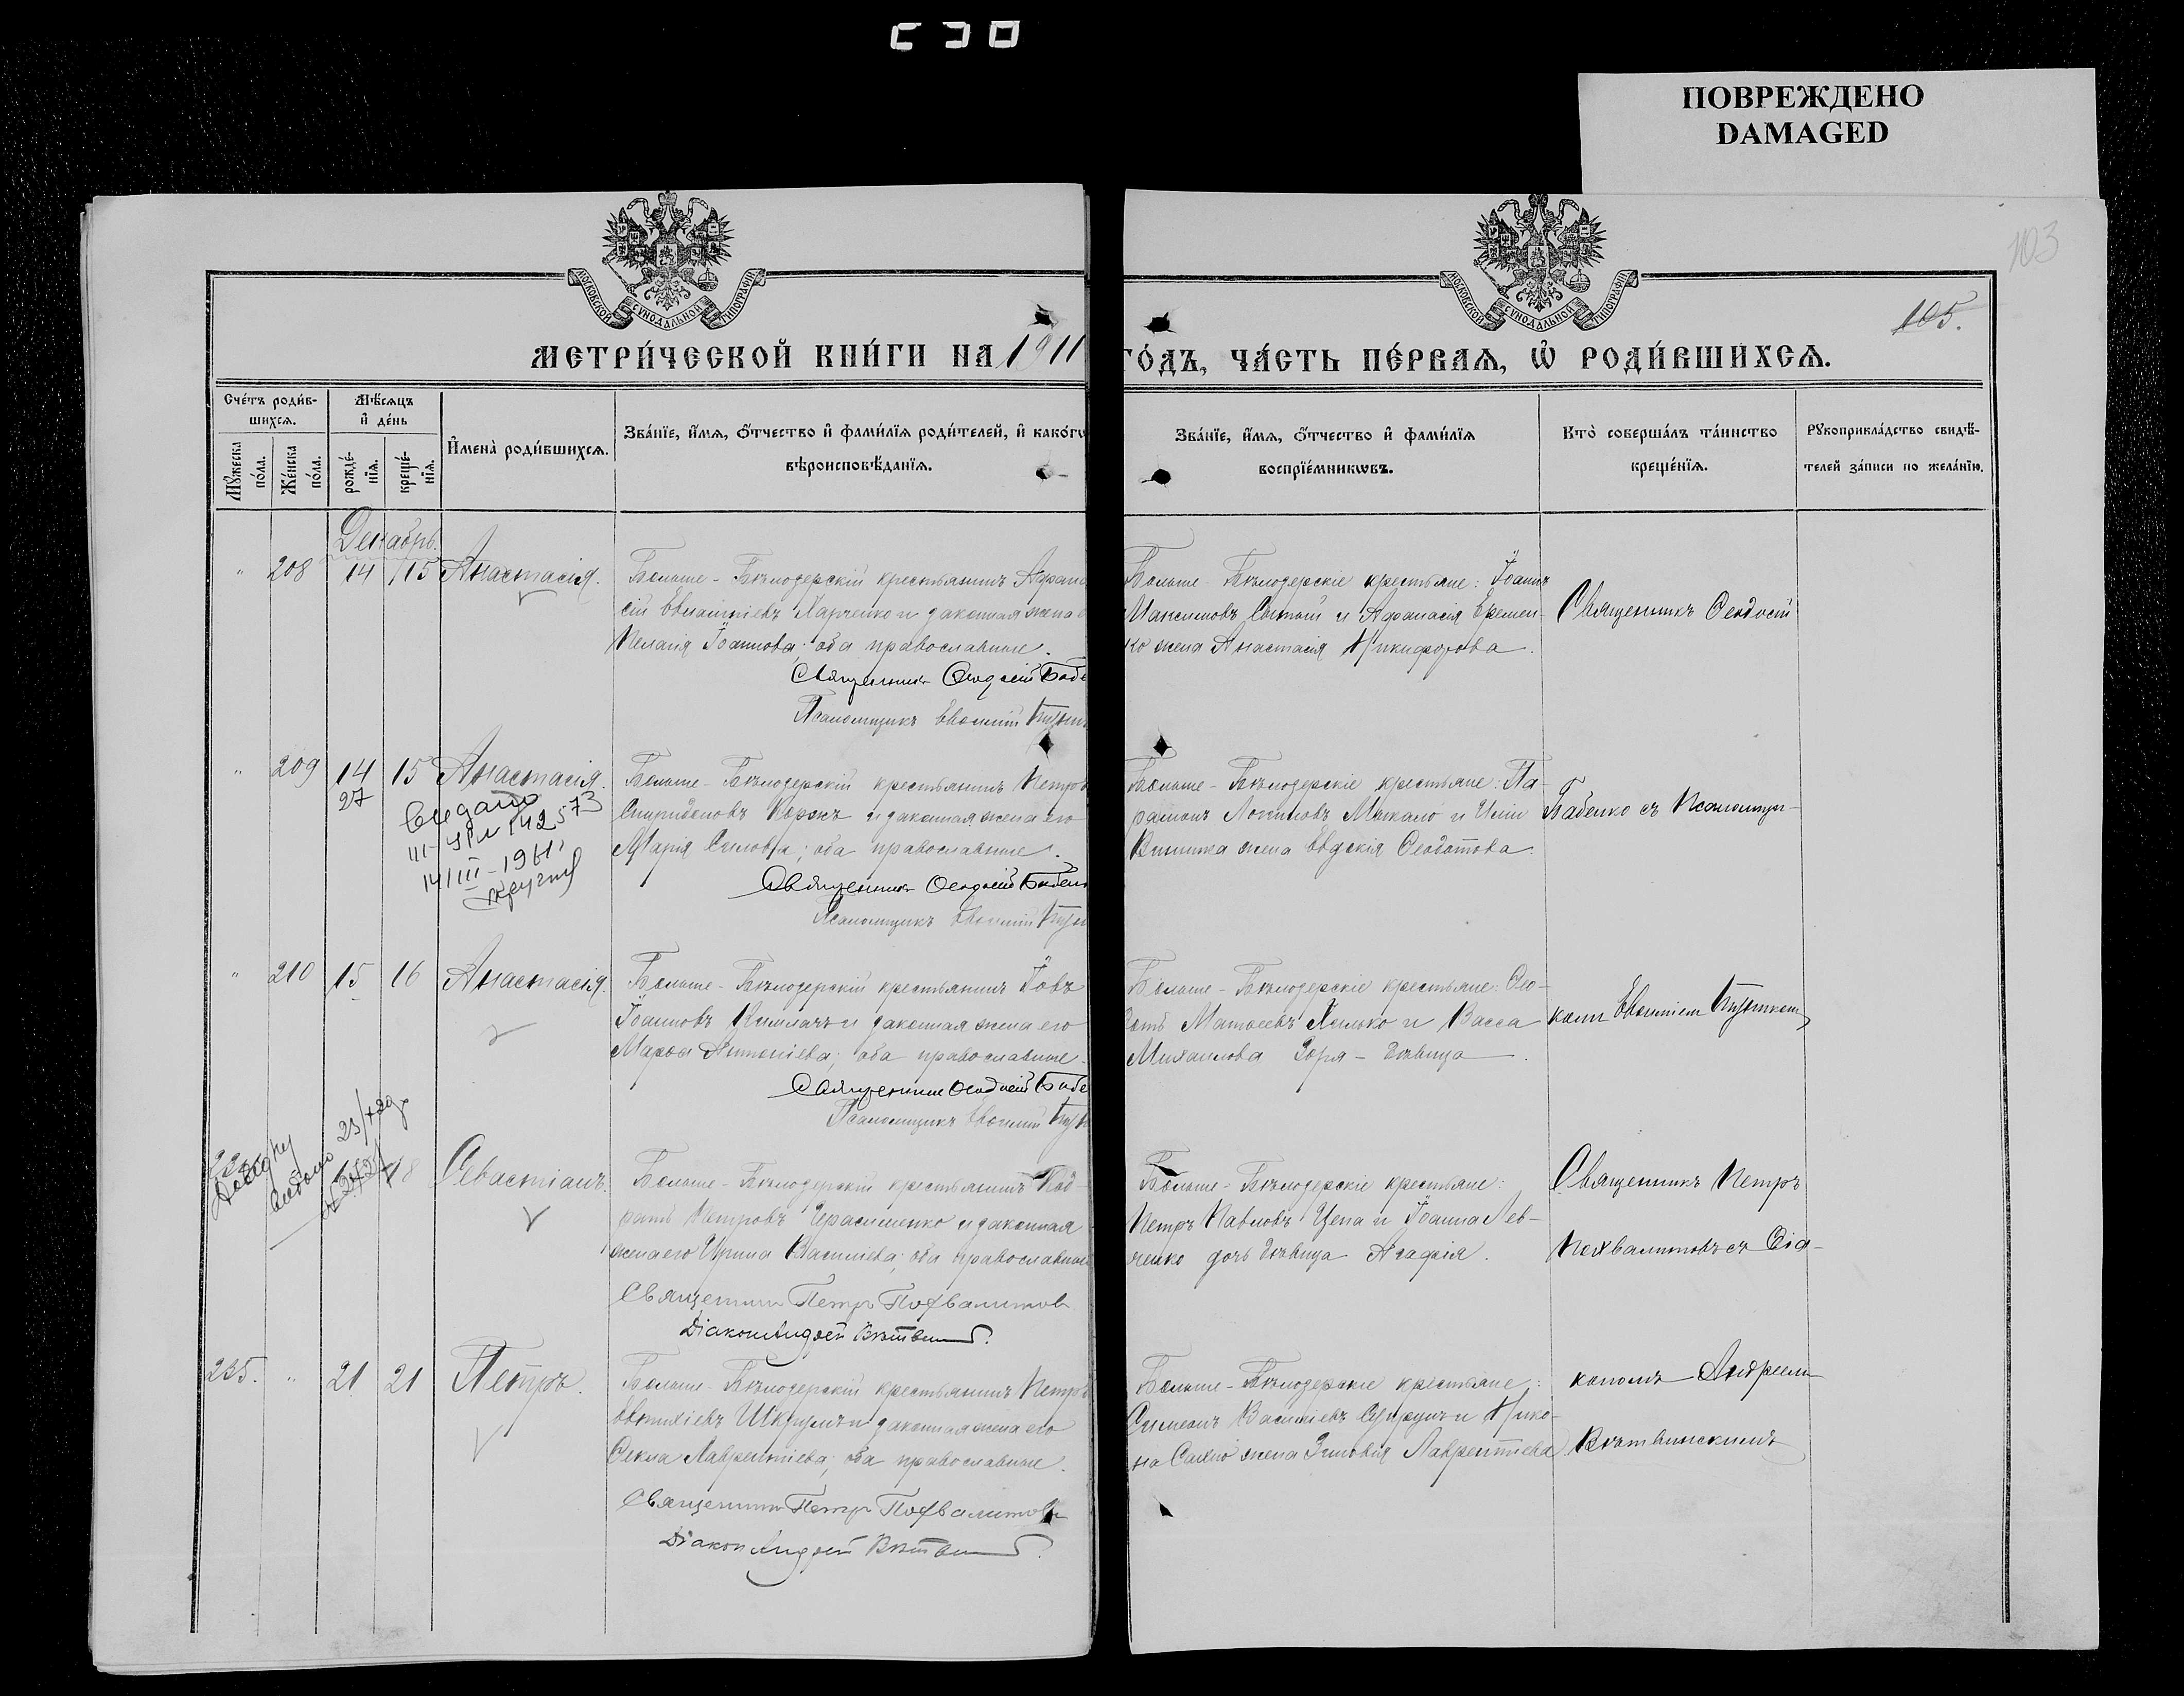 ПОВРЕЖДЕНО
DAMAGED
103
105.
МОСКОВСКОЙ СѴНОДАЛЬНОЙ ТИПОГРАФІИ
МОСКОВСКОЙ СѴНОДАЛЬНОЙ ТИПОГРАФІИ
МЕТРИ́ЧЕСКОЙ КНИ́ГИ НА 1911
ГО́ДЪ, ЧА́СТЬ ПЕ́РВАЯ, Ѽ РОДИ́ВШИХСЯ.
Сче́тъ роди́в-
шихся.
Мѣ́сяцъ
и҆ де́нь
Му́жеска
по́ла.
Же́нска
по́ла.
рожде́-
нїя.
креще́-
нїя.
И҆мена̀ роди́вшихся.
Зва́нїе, и҆́мя, ѻ҆́тчество и҆ фами́лїя роди́телей, и҆ како́гѡ
вѣроисповѣ́данїя.
Зва́нїе, и҆́мя, ѻ҆́тчество и҆ фами́лїя
воспрїе́мникѡвъ.
Кто̀ соверша́лъ та́инство
креще́нїя.
Рꙋкоприкла́дство свидѣ́-
телей за́писи по жела́нїю.
Декабрь.
" 208 14 15 Анастасія.
Больше-Бѣлозерскій крестьянинъ Афана
сій Харченко и законная жена
Пелагія Іоаннова; оба православные.
Священникъ Ѳеодосій Бабе
Псаломщикъ Евфимій
Больше-Бѣлозерскіе крестьяне: Іоаннъ
Максимовъ и Афанасія Еремен-
ко жена Анастасія Никифорова.
Священникъ Ѳеодосій
" 209 14 15 Анастасія.
27
Видано
142573
14/III-1961
Больше-Бѣлозерскій крестьянинъ Петръ
Спиридоновъ Коржъ и законная жена его
Марія Силова; оба православные.
Священникъ Ѳеодосій Бабен
Псаломщикъ Евфимій
Больше-Бѣлозерскіе крестьяне: Па-
рамонъ Логиновъ и
жена Евдокія Ѳеодотова.
Бабенко съ Псаломщи-
" 210 15 16 Анастасія.
Больше-Бѣлозерскій крестьянинъ Іовъ
Іоанновъ и законная жена его
Марѳа Антоніева; оба православные.
Священникъ Ѳеодосій Бабе
Псаломщикъ Евфимій
Больше-Бѣлозерскіе крестьяне: Ѳео-
дотъ Матѳеевъ Хилько и Васса
Михаилова Зоря - дѣвица.
комъ Евфиміем
18 Севастіанъ.
Больше-Бѣлозерскій крестьянинъ Код-
ратъ Петровъ Герасименко и законная
жена его Ирина Василіева; оба православные
Священникъ Петръ Похвалитовъ
Діаконъ Андрей
Больше-Бѣлозерскіе крестьяне:
Петръ Павловъ Цепа и Іоанна Лев-
ченко дочь дѣвица Агафія.
Священникъ Петръ
Похвалитовъ съ Діа-
235. " 21 21 Петръ.
Больше-Бѣлозерскій крестьянинъ Петръ
Евтихіевъ и законная жена его
Ѳекла Лаврентіева; оба православные.
Священникъ Петръ Похвалитовъ
Діаконъ Андрей
Больше-Бѣлозерскіе крестьяне:
Симеонъ Василіевъ и Нико-
на Сахно жена Зиновія Лаврентіева
кономъ Андреемъ
Вѣтвинскимъ